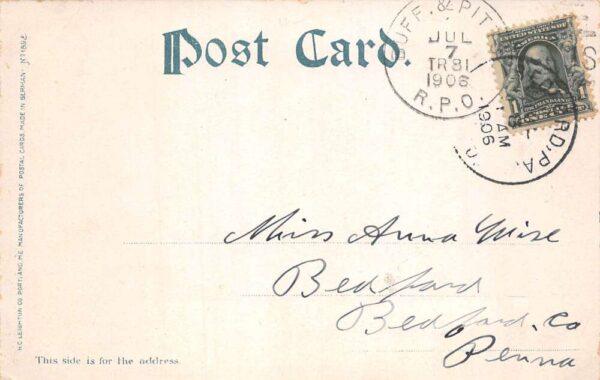 Post Card.
BUFF. & PIT
JUL
7
TR 81
1906
R.P.O.
AM
1906
RD, PA.
UNITED STATES OF
AMERICA
1 1
FRANKLIN
ONE CENT
Miss Anna Wise
Bedford
Bedford. Co
Penna
This side is for the address.
H.C. LEIGHTON CO. PORTLAND, ME. MANUFACTURERS OF POSTAL CARDS. MADE IN GERMANY.